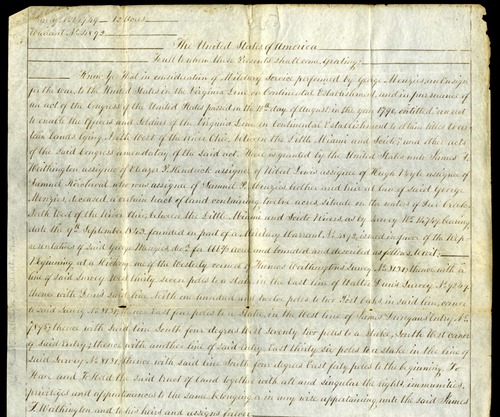 12 Acres
Warrant No. 4892
The United States of America
To all to whom these Presents shall come, Greeting:
Know Ye That in consideration of Military Service performed by George Menzies, an Ensign
for the war, to the United States in the Virginia Line on Continental Establishment, and in pursuance of
an act of the Congress of the United States passed on the 10th day of August in the year 1790, entitled, an act
to enable the Officers and Soldiers of the Virginia Line on Continental Establishment to obtain titles to cer-
tain lands lying North West of the river Ohio, between the Little Miami and Scioto; and other acts
of the said Congress amendatory of the said act, There is granted by the United States unto James T.
Worthington assignee of of Uriel Lewis assignee of Hugh assignee of
Samuel who was assignee of Samuel P. Menzies brother and heir at law of said George
Menzies, deceased, a certain tract of land containing twelve acres, situate on the waters of Creek
North West of the river Ohio, between the Little Miami and Scioto Rivers, as by survey No. bearing
date the 9th September founded in part of a Military Warrant No. 4892, issued in favor of the Rep-
resentatives of said George Menzies, decd. for acres and bounded and described as follows, to wit;
Beginning at a Hickory, one of the Westerly corners of Thomas Worthington's survey No. thence with a
line of said survey, West thirty seven poles to a stake in the East line of Walter survey No.
thence with said line North one hundred and twelve poles to two Post Oaks in said line, corner
to said survey No. thence East four poles to a stake, in the West line of James Entry No.
thence with said line South four degrees West seventy two poles to a stake, South West corner
of said Entry; thence with another line of said entry East thirty six poles to a stake in the line of
said Survey No. thence with said line South four degrees East forty poles to the beginning. To
Have and To Hold the said tract of land together with all and singular the rights, immunities,
privileges and appurtenances to the same belonging or in any wise appertaining, unto the said James
T. Worthington and to his heirs and assigns forever